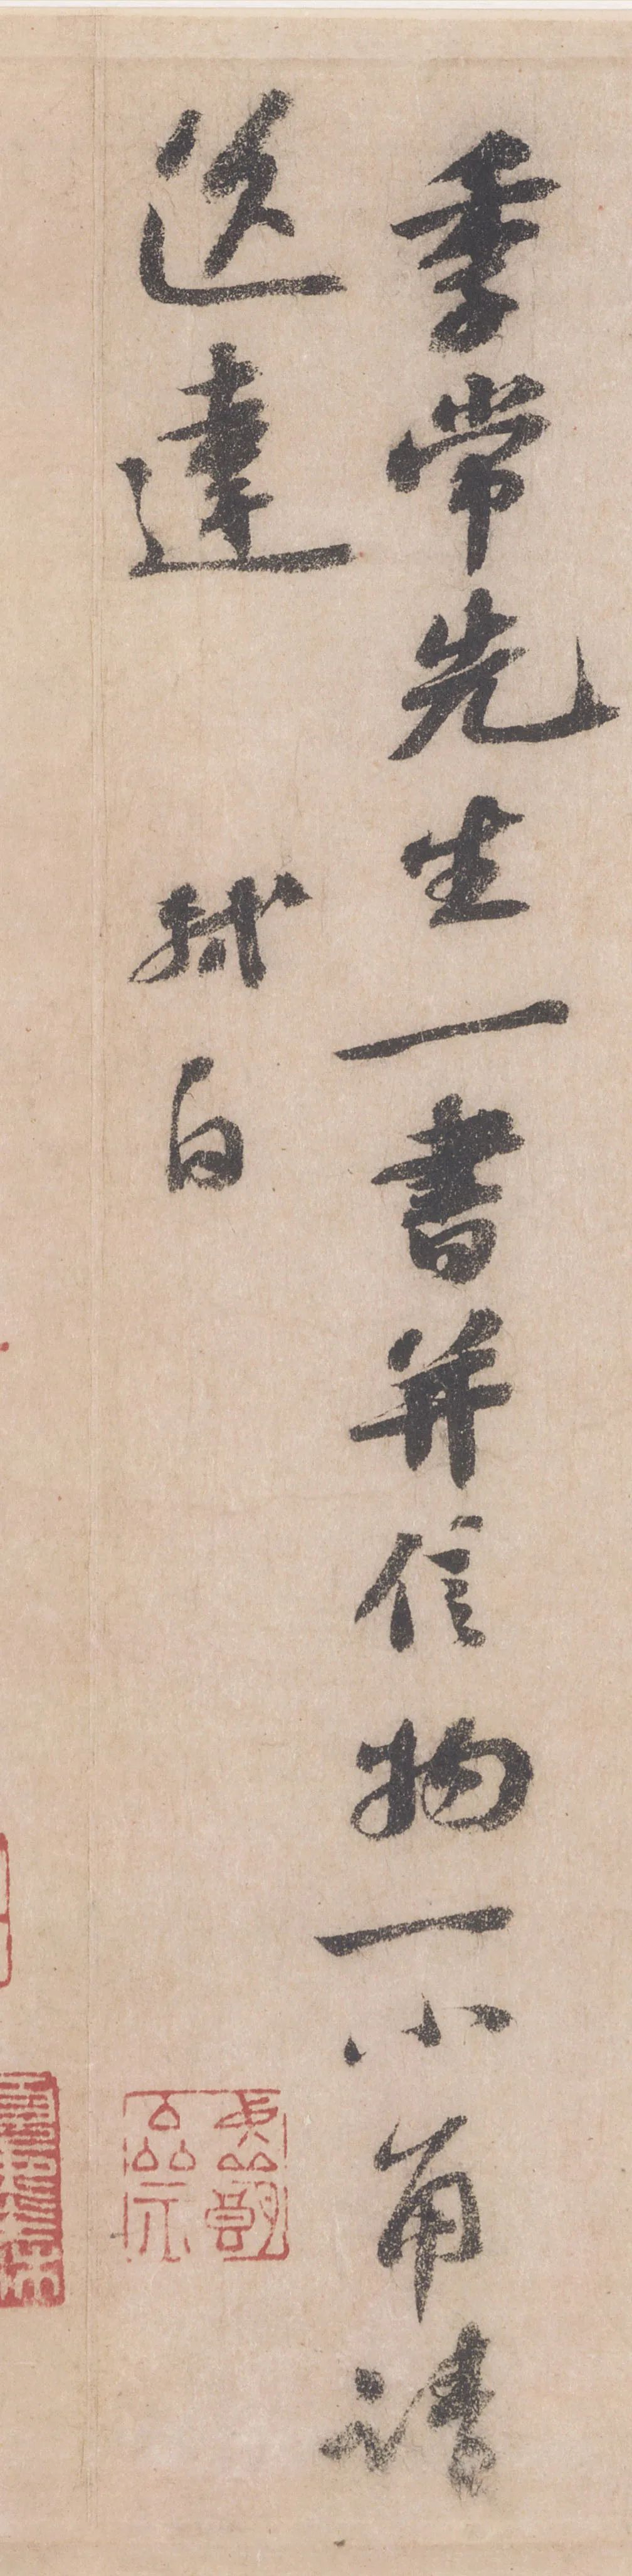 季常先生一書并信物一小角請
送達　軾白